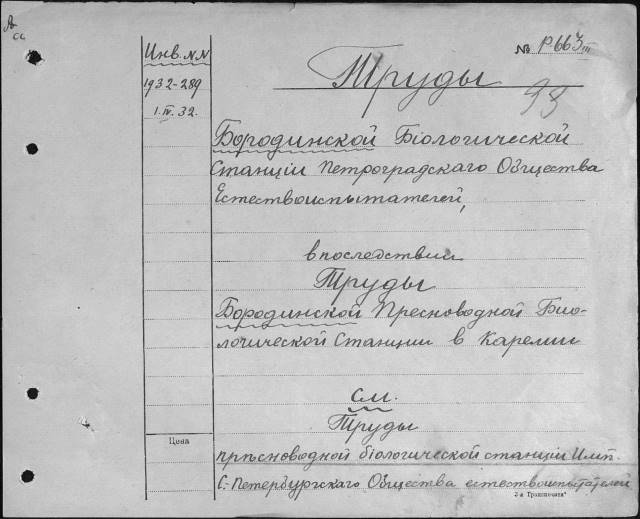 Инв. NN
1932-289
1.IV.32.
№ Р663 III
Труды
Бородинской Біологической
Станціи Петроградскаго Общества
Естествоиспытателей,
впоследствии
Труды
Бородинской Пресноводной Био-
логической Станции в Карелии
см.
Труды
Цена
прѣсноводной біологической станціи Имп.
С.-Петербургскаго Общества естествоиспытателей